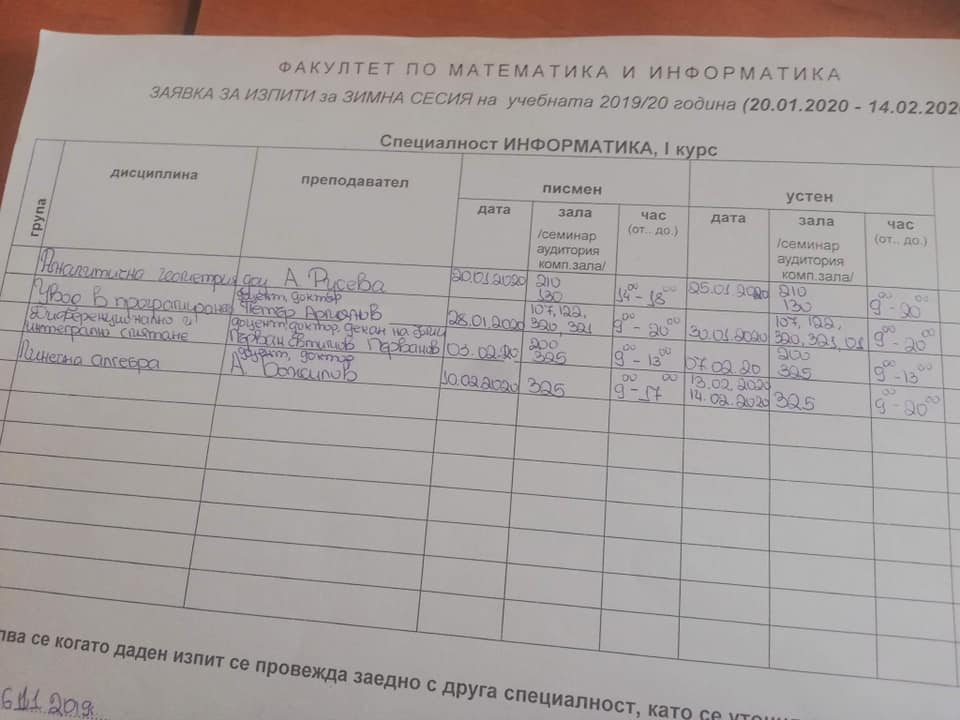 ФАКУЛТЕТ ПО МАТЕМАТИКА И ИНФОРМАТИКА
ЗАЯВКА ЗА ИЗПИТИ за ЗИМНА СЕСИЯ на учебната 2019/20 година (20.01.2020 - 14.02.202
Специалност ИНФОРМАТИКА, I курс
група дисциплина преподавател писмен устен
дата зала час дата зала час
/семинар (от.. до.) /семинар (от.. до.)
аудитория аудитория
комп.зала/ комп.зала/
Аналитична геометрия доц А. Русева 20.01.2020 210 130 14⁰⁰ - 18⁰⁰ 25.01.2020 210 130 9⁰⁰ - 20⁰⁰
Увод в програмиране доцент, доктор
Петър Армянов 28.01.2020 107, 122, 320, 321 9⁰⁰ - 20⁰⁰ 30.01.2020 107, 122, 320, 321, 01 9⁰⁰ - 20⁰⁰
Диференциално и доцент доктор, декан на
интегрално смятане Първан Първанов 03.02.20 200 325 9⁰⁰ - 13⁰⁰ 07.02.20 200 325 9⁰⁰ - 13⁰⁰
Линейна алгебра доцент, доктор
А. Божилов 10.02.2020 325 9⁰⁰ - 17⁰⁰ 13.02.2020 14.02.2020 325 9⁰⁰ - 20⁰⁰
лва се когато даден изпит се провежда заедно с друга специалност, като се
2019г.